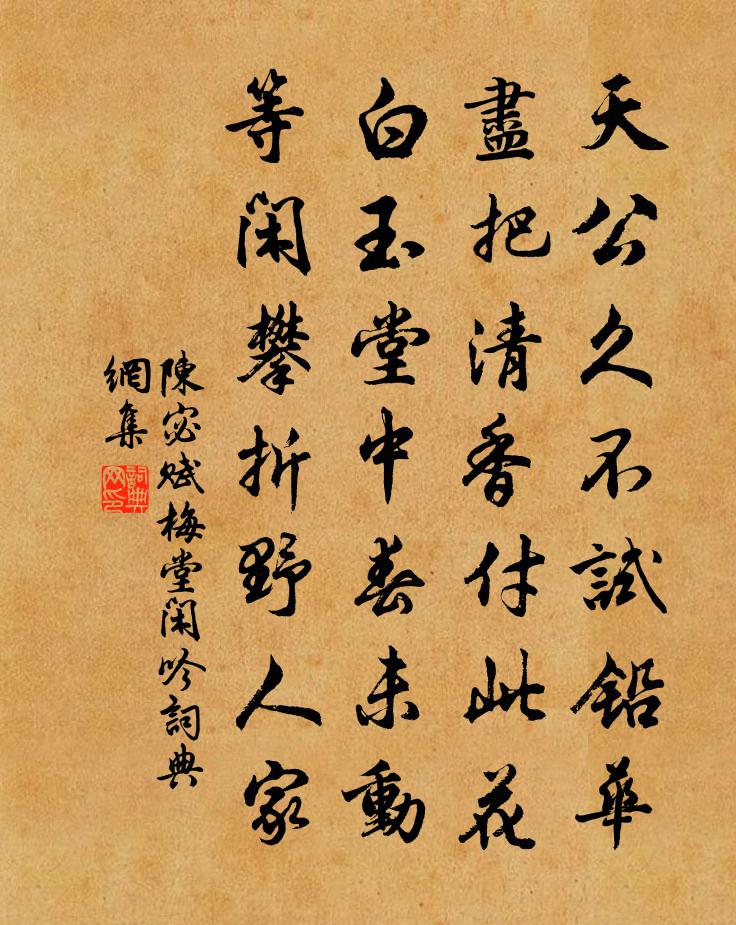 天公久不試鉛華
盡把清香付此花
白玉堂中春未動
等閑攀折野人家
陳宓賦梅堂閑吟詞典
網集
詞典网印